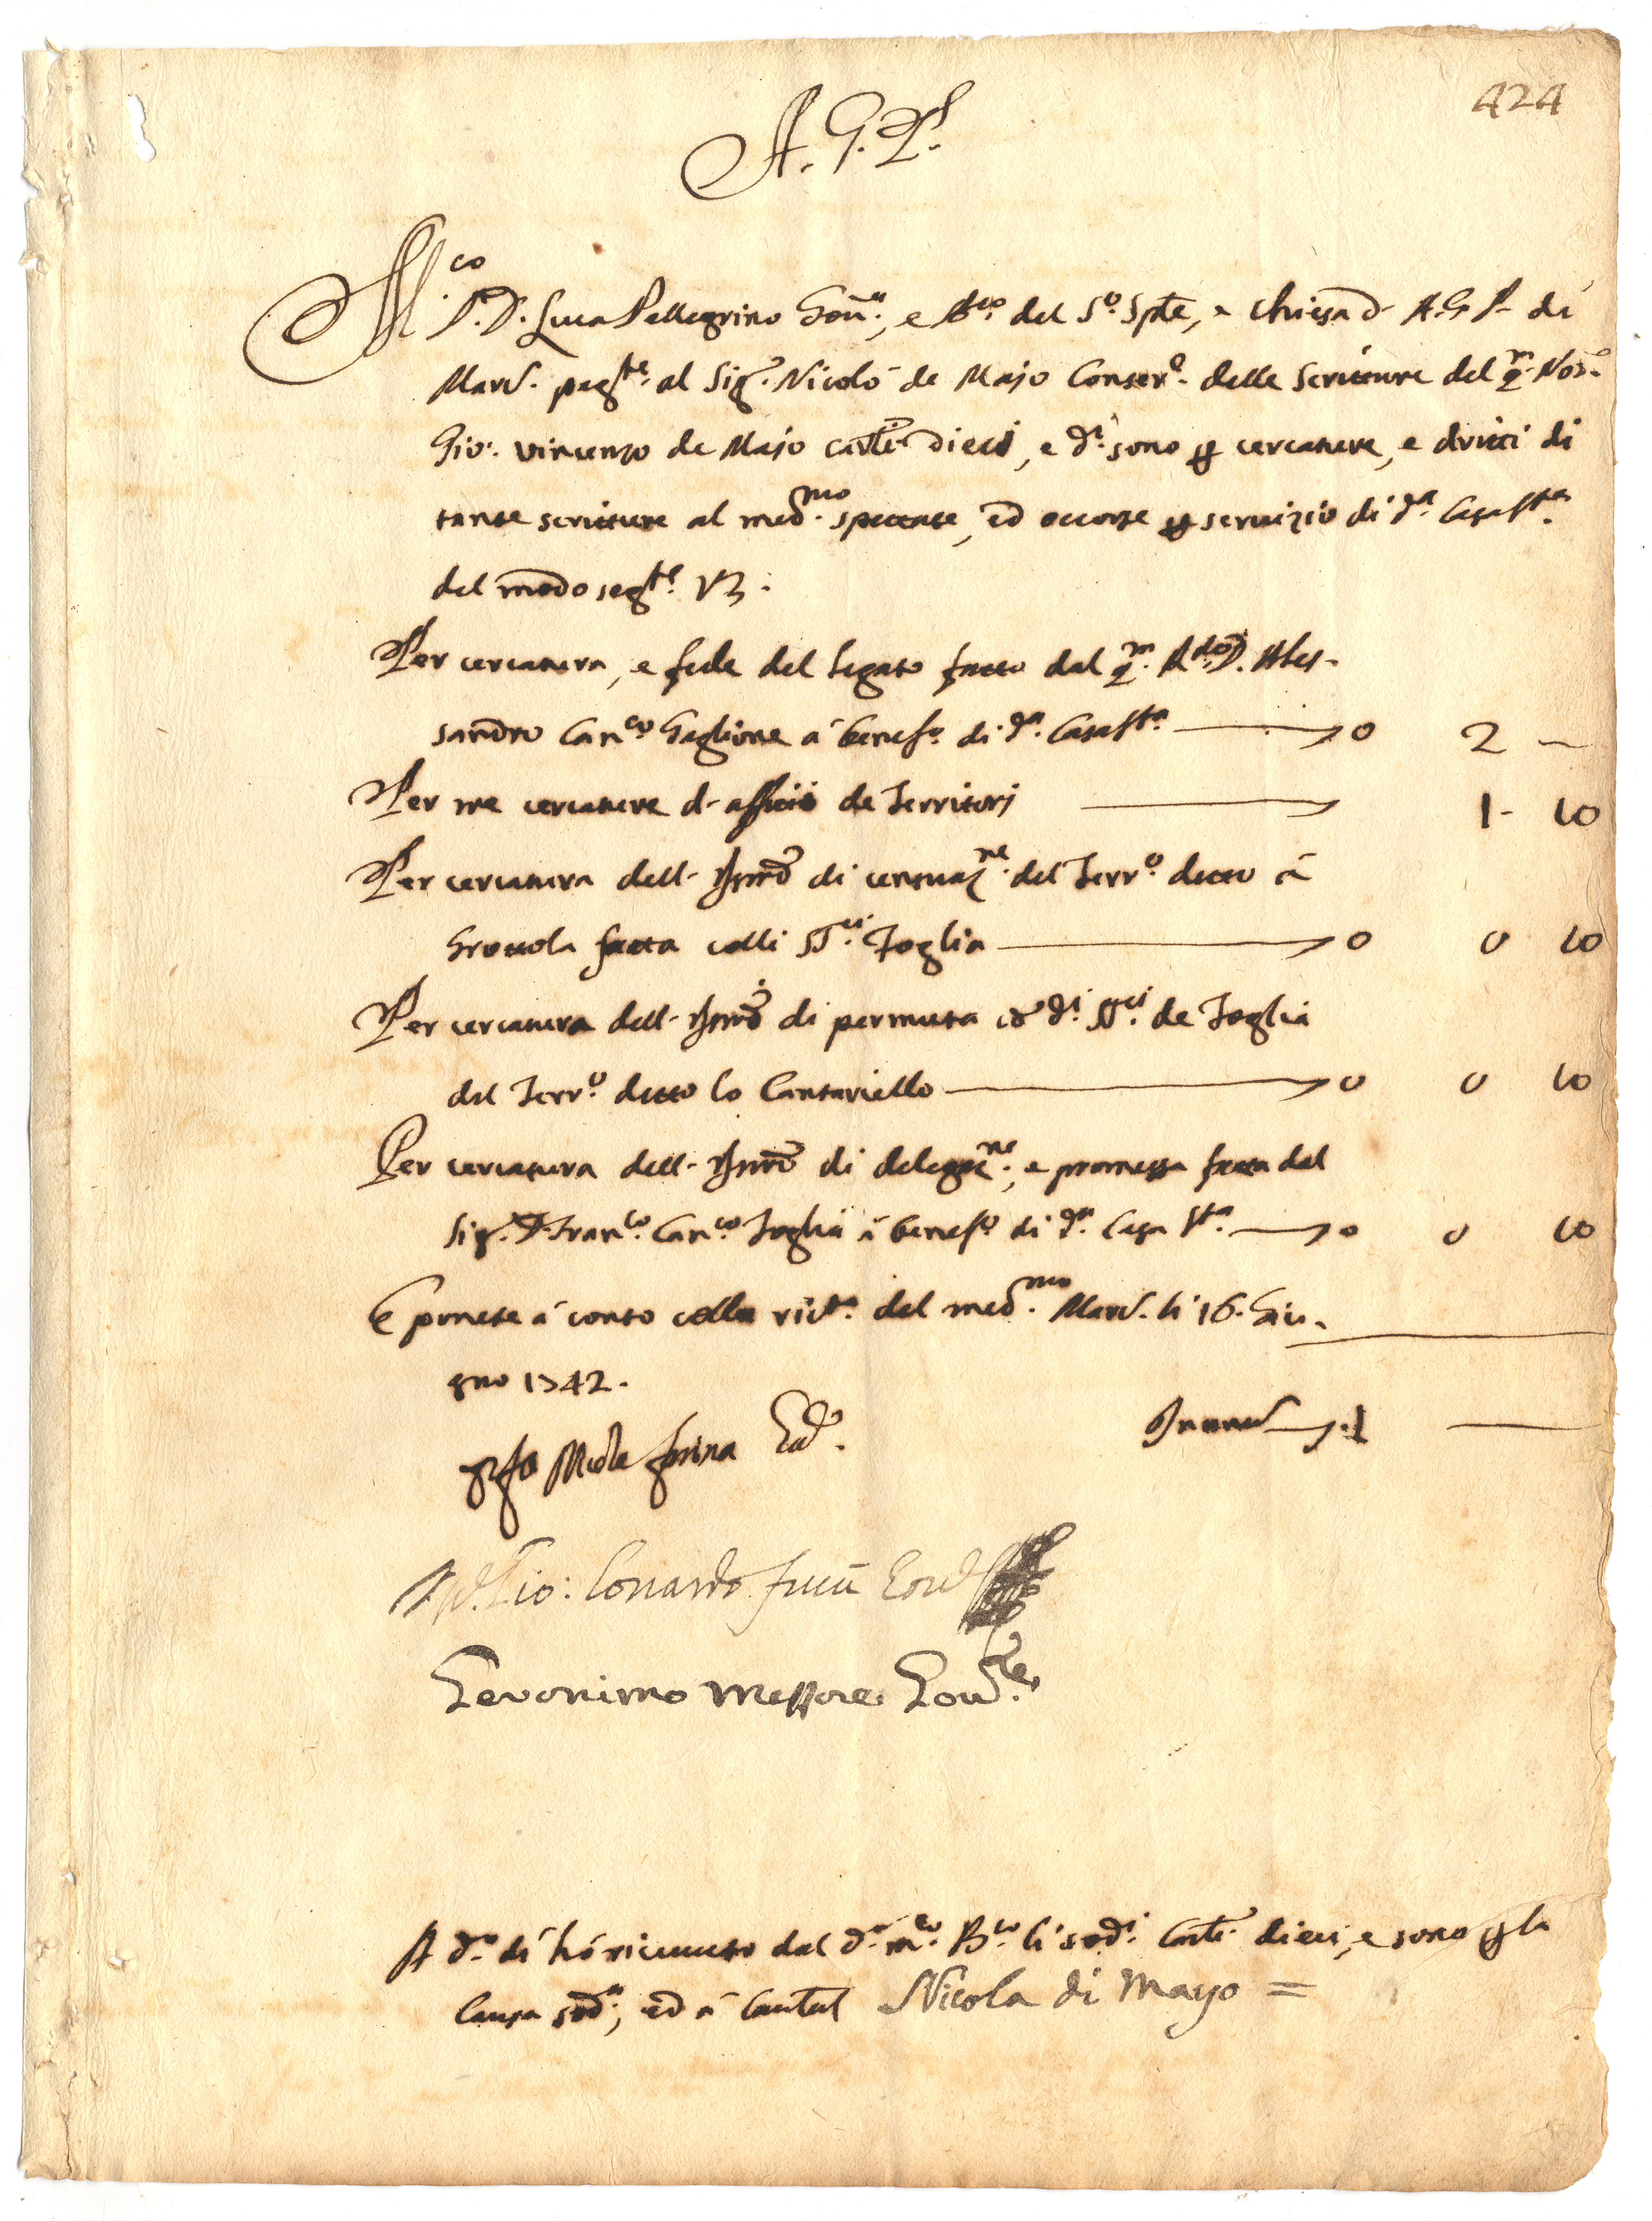 424
A. G. P.
M.co S.r D. Luca Pellegrino Gou.re, e B.co del S.o Sple, e Chiesa d- A. G. P. di
Marc.e pag.te al Sig.r Nicolò de Majo Conser.e delle Scritture del q.m Not.o
Gio: Vincenzo de Majo carl.i dieci, e d.i sono p cercature, e dritti di
tante scritture al med.mo spettate, ed occorse p seruizio di d.a Casa S.ta
del modo seg.te V3.
Per cercatura, e fede del legato fatto dal q.m R.do D. Ales-
sandro Can.co Gaglione à benef.o di d.a Casa S.ta 0 2 —
Per tre cercature d- de Territorj 1- 10
Per cercatura dell- Istro di censuaz.ne del Terr.o detto à
Grottola fatta colli SS.ri Foglia 0 0 10
Per cercatura dell- Istro di permuta co d.i SS.ri de Foglia
del Terr.o detto lo Cantariello 0 0 10
Per cercatura dell- Istro di delegaz.ne, e promessa fatta dal
Sig.r D. Fran.co Can.co Foglia à benef.o di d.a Casa S.ta 0 0 10
E ponete à conto colla ric.ta del med.mo Marc.e li 16. Giu-
gno 1742.
In unu 1 —
Farina Ed.
Gio: Lonardo
Geronimo Messore Gou.re
A d.o dì hò riceuuto dal d.o m.co B.co li sod.i carl.i dieci, e sono p la
causa sod.a, ed à cautel Nicola di Mayo =